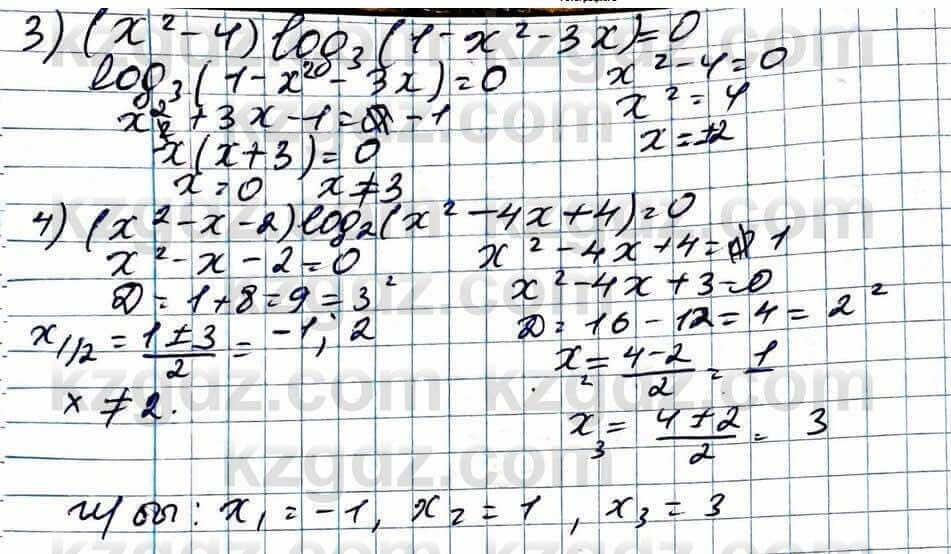 3) (x² - 4) log₃(1 - x² - 3x) = 0
log₃(1 - x² - 3x) = 0
x² - 4 = 0
x² + 3x - 1 = -1
x² = 4
x(x + 3) = 0
x = ±2
x = 0 x ≠ 3
4) (x² - x - 2) log₂(x² - 4x + 4) = 0
x² - x - 2 = 0
x² - 4x + 4 = 1
D = 1 + 8 = 9 = 3²
x² - 4x + 3 = 0
x₁/₂ = (1 ± 3)/2 = -1; 2
D = 16 - 12 = 4 = 2²
x₂ = (4 - 2)/2 = 1
x ≠ 2.
x₃ = (4 + 2)/2 = 3
x₁ = -1, x₂ = 1, x₃ = 3
kzgdz.com